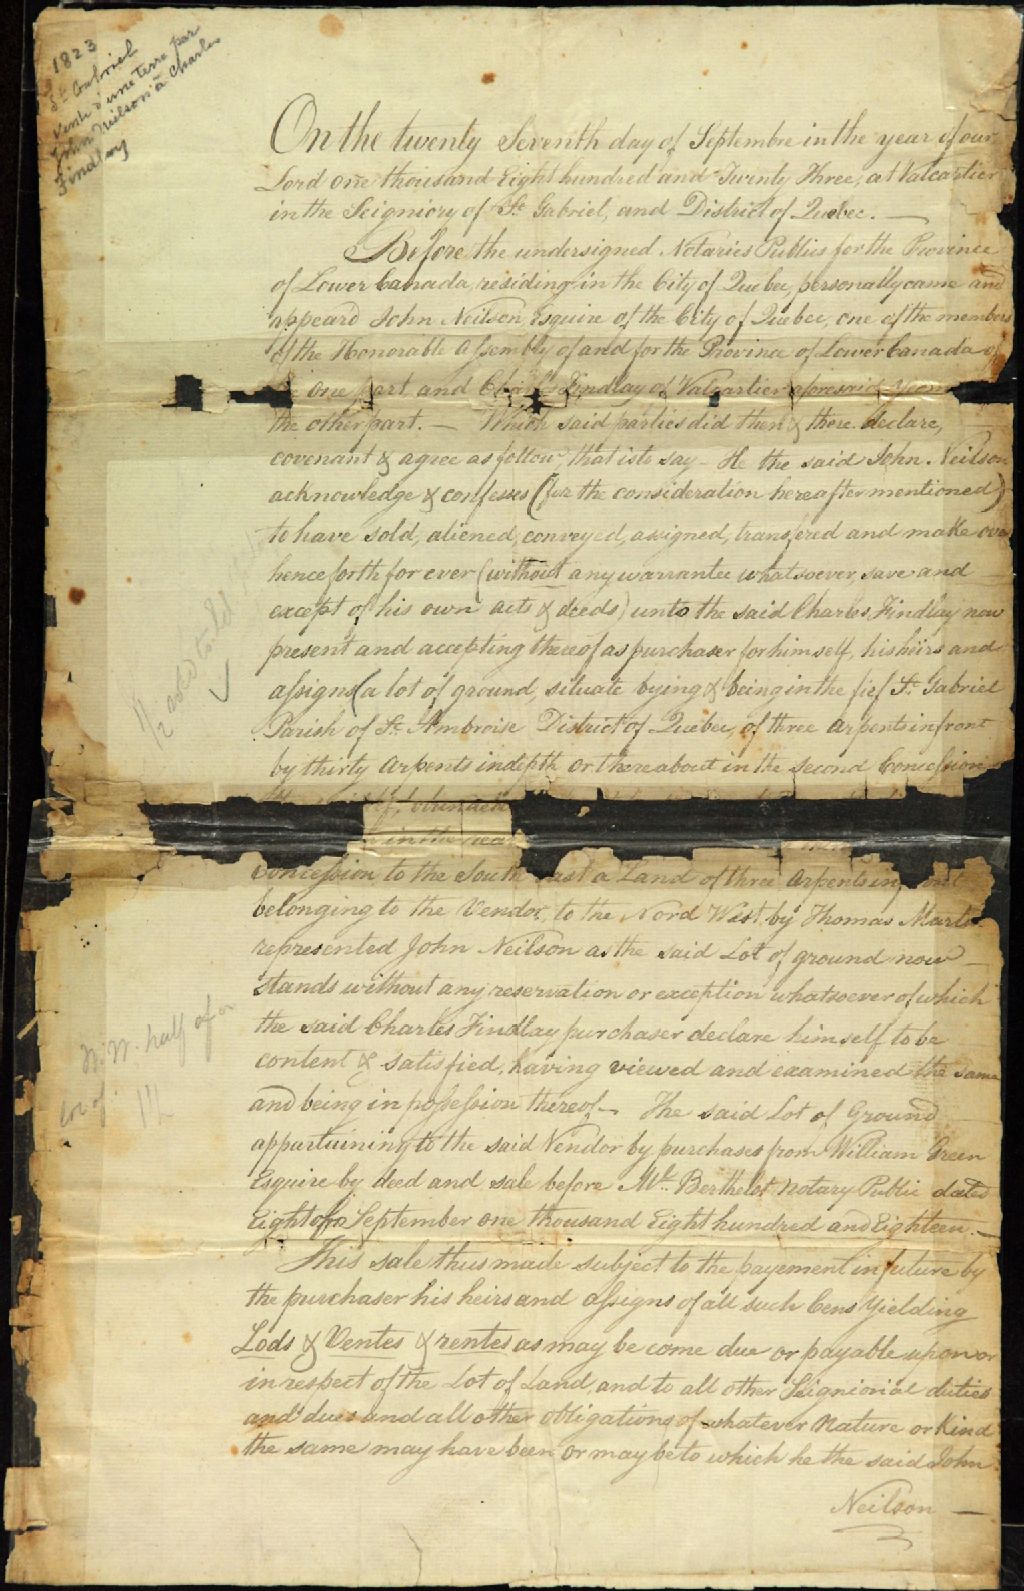 1823
St Gabriel
Vente d'une terre par
John Neilson à Charles
Findlay
On the twenty Seventh day of Septembre in the year of our
Lord one thousand Eight hundred and Twenty Three, at Valcartier
in the Seigniory of St. Gabriel, and District of Quebec. —
Before the undersigned Notaries Publics for the Province
of Lower Canada, residing in the City of Quebec, personally came and
appeard John Neilson, Esquire of the City of Quebec, one of the members
of the Honorable Assembly of and for the Province of Lower Canada of
one part, and Charles Findlay of Valcartier aforesaid
the other part. — Which said parties did then & there declare,
covenant & agree as follow, that is to say — He the said John Neilson
acknowledge & confesses (for the consideration hereafter mentioned)
to have sold, aliened, conveyed, assigned, transfered and make over
henceforth for ever (without any warrantee whatsoever, save and
except of his own acts & deeds) unto the said Charles Findlay now
present and accepting thereof as purchaser for himself, his heirs and
assigns (a lot of ground, situate bying & being in the fief St. Gabriel
Parish of St. Ambroise District of Quebec, of three arpents in front
by thirty arpents in depth or thereabout in the second Concession
in the rear
Concession to the South East a Land of three arpents in front
belonging to the Vendor, to the Nord West by Thomas
represented John Neilson as the said Lot of ground now
stands without any reservation or exception whatsoever of which
the said Charles Findlay purchaser declare himself to be
content & satisfied, having viewed and examined the same
and being in possession thereof — The said Lot of Ground
appartaining to the said Vendor by purchases from William Green
Esquire by deed and sale before Mr. Berthelot Notary Public dated
Eight of September one thousand Eight hundred and Eighteen. —
This sale thus made subject to the payement in future by
the purchaser his heirs and assigns of all such Cens Yielding
Lods & Ventes & rentes as may be come due or payable upon or
in respect of the Lot of Land, and to all other Seigniorial duties
and dues and all other obligations of whatever Nature or Kind
the same may have been or may be to which he the said John
Neilson —
1/2
N.W. half of
Lot